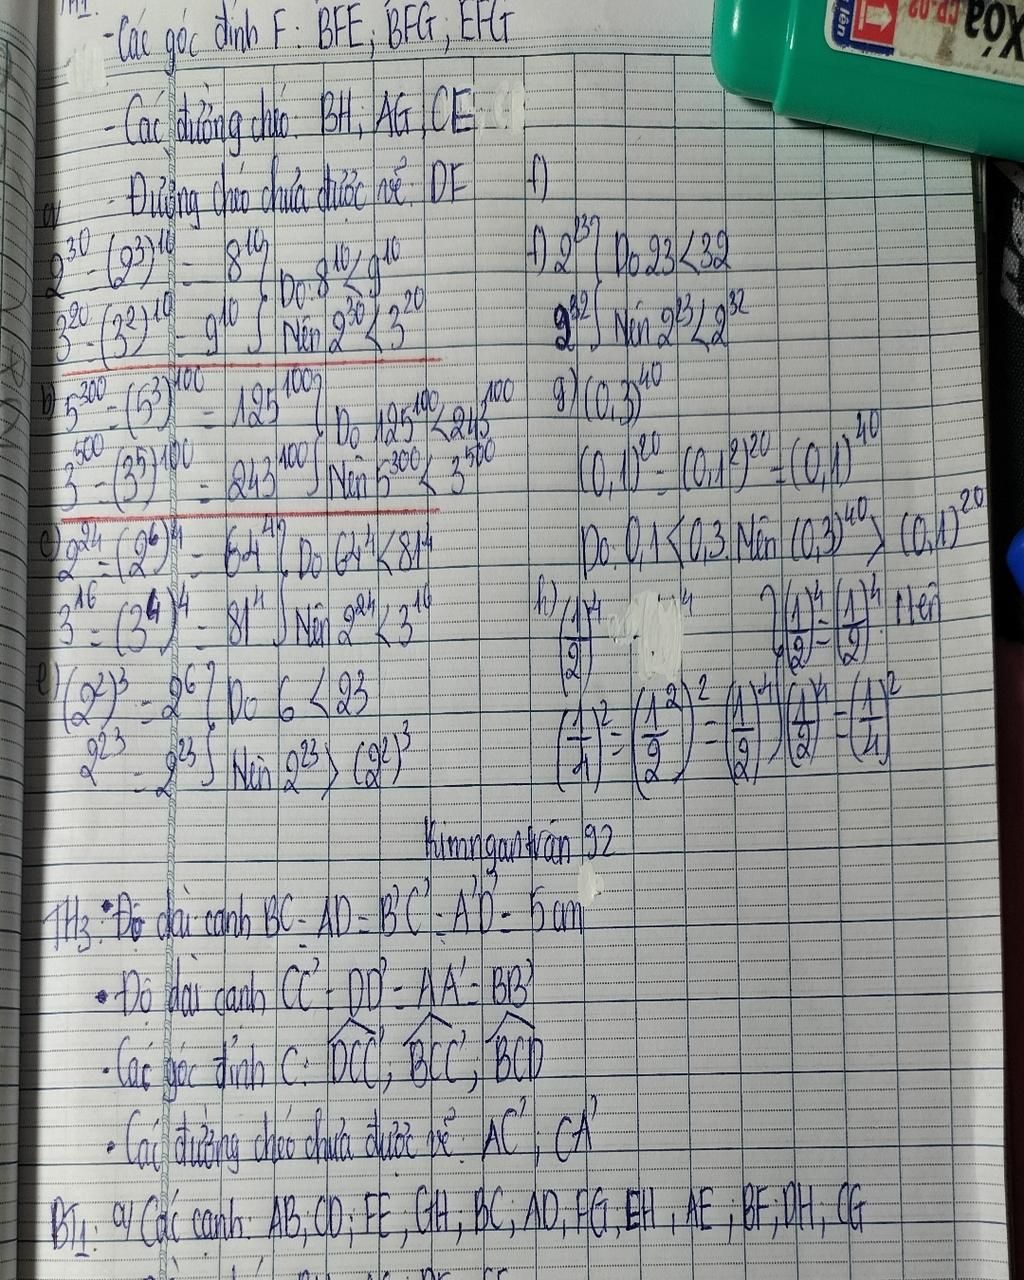 TH1:
-Các góc đỉnh F: BFE; BFG; EFG
-Các đường chéo: BH, AG, CE
-Đường chéo chưa được vẽ: DF
a) 2³⁰ = (2³)¹⁰ = 8¹⁰ } Do 8¹⁰ < 9¹⁰
3²⁰ = (3²)¹⁰ = 9¹⁰ } Nên 2³⁰ < 3²⁰
b) 5³⁰⁰ = (5³)¹⁰⁰ = 125¹⁰⁰ } Do 125¹⁰⁰ < 243¹⁰⁰
3⁵⁰⁰ = (3⁵)¹⁰⁰ = 243¹⁰⁰ } Nên 5³⁰⁰ < 3⁵⁰⁰
c) 2²⁴ = (2⁶)⁴ = 64⁴ } Do 64⁴ < 81⁴
3¹⁶ = (3⁴)⁴ = 81⁴ } Nên 2²⁴ < 3¹⁶
e) (2²)³ = 2⁶ } Do 6 < 23
2²³ = 2²³ } Nên 2²³ > (2²)³
f)
f) 2²³ } Do 23 < 32
2³² } Nên 2²³ < 2³²
g) (0,3)⁴⁰
(0,1)²⁰ = (0,1²)²⁰ = (0,1)⁴⁰
Do 0,1 < 0,3. Nên (0,3)⁴⁰ > (0,1)²⁰
h) (1/2)⁴ } (1/2)⁴ = (1/2)⁴. Nên
(1/4)² = (1²/2)² = (1/2)⁴ } (1/2)⁴ = (1/4)²
Kimngantrần 92
TH3: • Độ dài cạnh BC = AD = B'C' = A'D' = 5cm
• Độ dài cạnh CC' = DD' = AA' = BB'
• Các góc đỉnh C: DCC', BCC', BCD
• Các đường chéo chưa được vẽ: AC'; CA'
BT1: a) Các cạnh: AB; CD; FE; GH; BC; AD; FG; EH; AE; BF; DH; CG